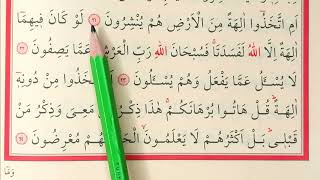 اَمِ اتَّخَذُٓوا اٰلِهَةً مِنَ الْاَرْضِ هُمْ يُنْشِرُونَ ﴿٢١﴾ لَوْ كَانَ فٖيهِمَٓا
اٰلِهَةٌ اِلَّا اللّٰهُ لَفَسَدَتَاۚ فَسُبْحَانَ اللّٰهِ رَبِّ الْعَرْشِ عَمَّا يَصِفُونَ ﴿٢٢﴾
لَا يُسْـَٔلُ عَمَّا يَفْعَلُ وَهُمْ يُسْـَٔلُونَ ﴿٢٣﴾ اَمِ اتَّخَذُوا مِنْ دُونِهٖٓ
اٰلِهَةًۜ قُلْ هَاتُوا بُرْهَانَكُمْۚ هٰذَا ذِكْرُ مَنْ مَعِيَ وَذِكْرُ مَنْ
قَبْلٖيۜ بَلْ اَكْثَرُهُمْ لَا يَعْلَمُونَۙ الْحَقَّ فَهُمْ مُعْرِضُونَ ﴿٢٤﴾
وَمَٓا